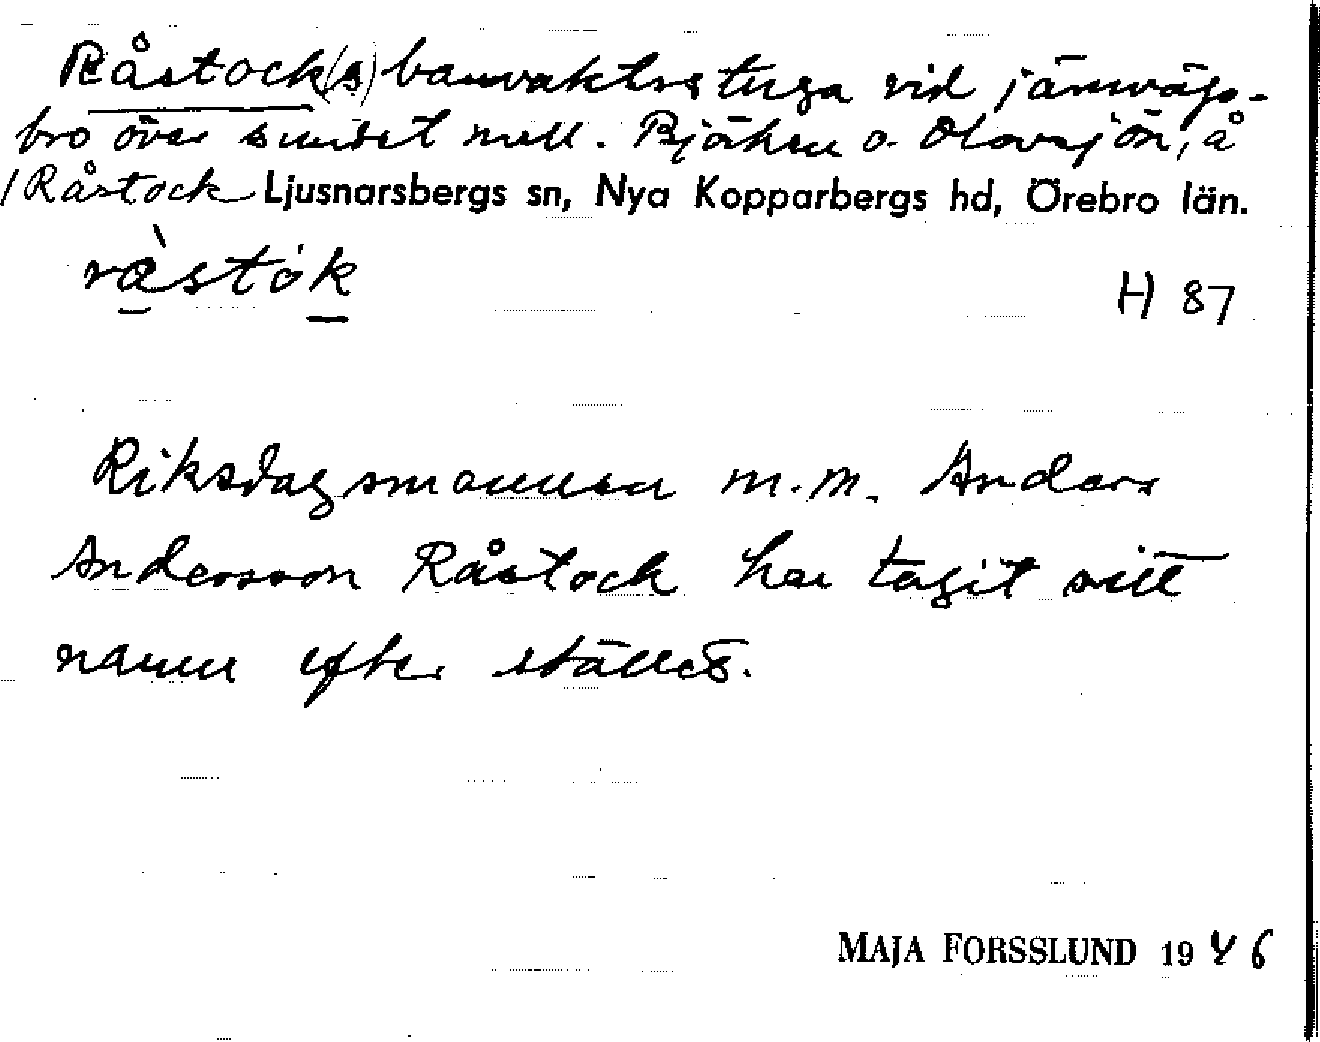 Råstock(s) banvaktsstuga vid järnvägs-
bro över sundet mell. Björken o. Olovsjön, å
/Råstock Ljusnarsbergs sn, Nya Kopparbergs hd, Örebro län.
ràstók
H 87
Riksdagsmannen m.m. Anders
Andersson Råstock har tagit sitt
namn efter stället.
MAJA FORSSLUND 1946